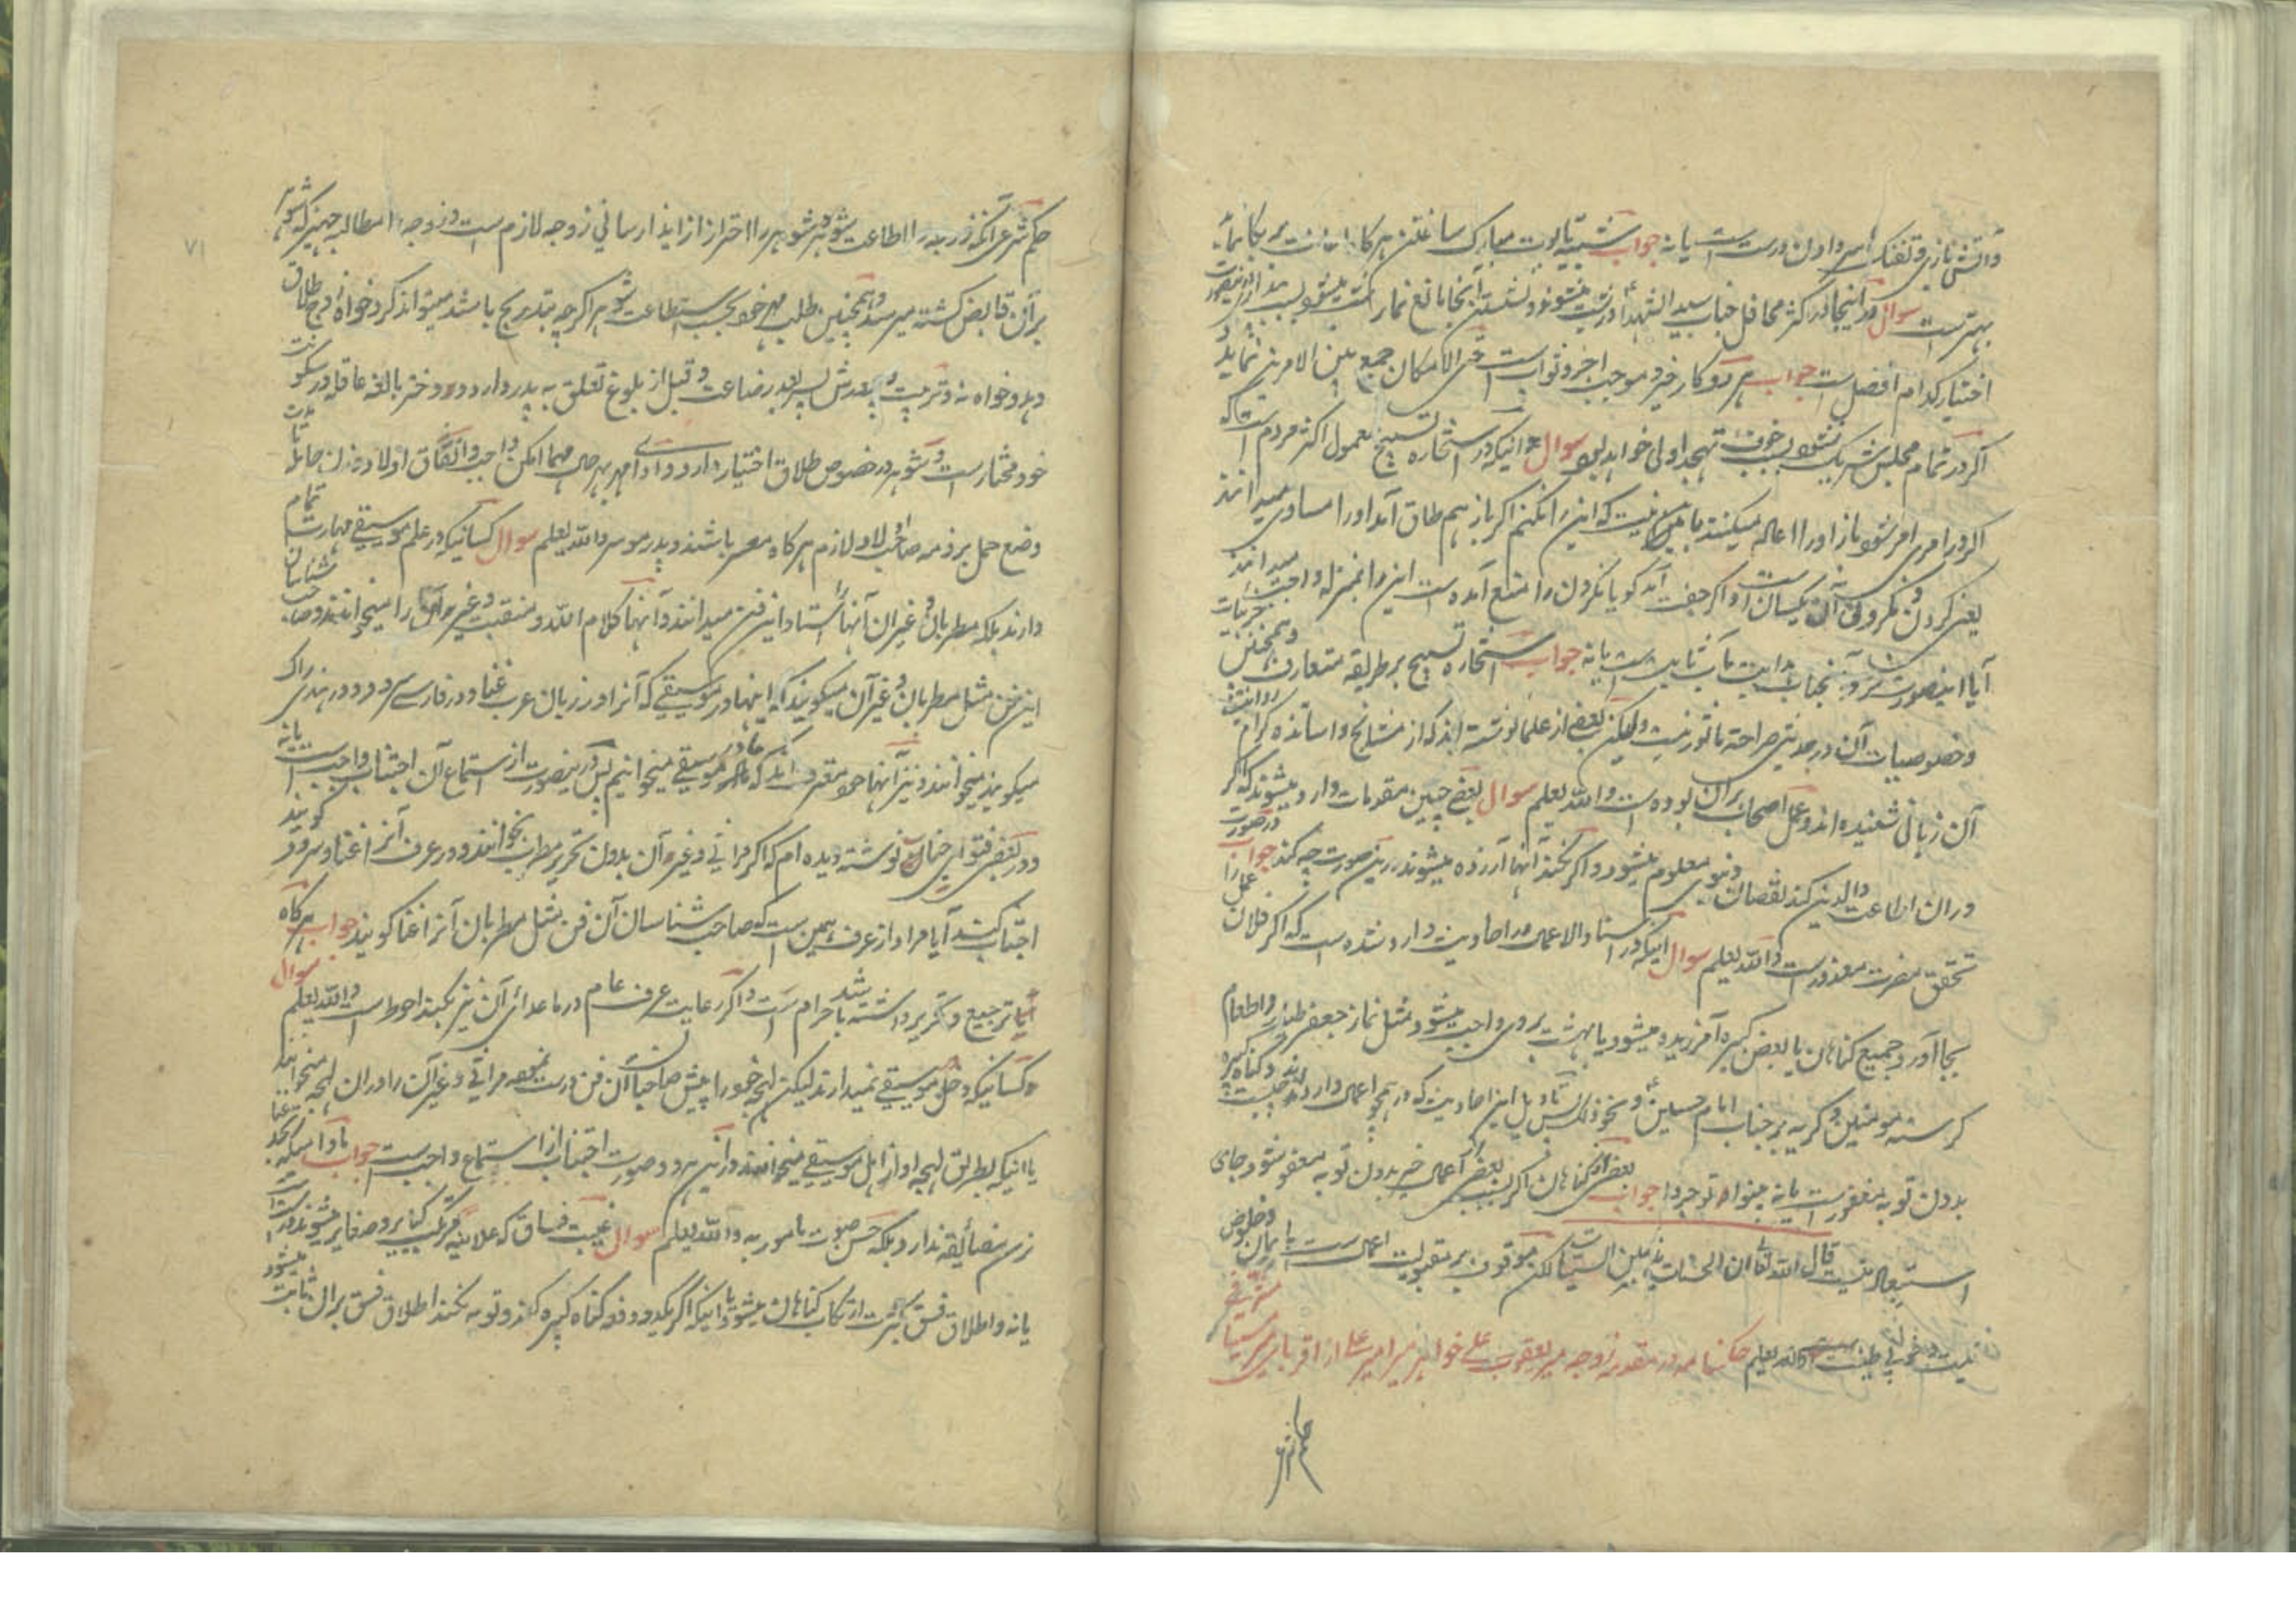 و آتش بازی و تفنک سر دادن درست است یا نه جواب شبیه تابوت مبارک ساختن هرکاه
بهتر است سوال در اینجا در اکثر محافل جناب سید الشهدا در شب میشود و نشستن آنجا مانع نماز شب میشود پس درینصورت
اختیار کدام افضل است جواب هر دو کار خیر و موجب اجر و ثواب است حتی الامکان جمع بین الامرین نماید و
اکر در تمام مجلس شریک نشود بخوف تهجد اولی خواهد بود سوال آنیکه در استخاره تسبیح معمول اکثر مردم است که
اکر در امری امر نشود باز او را اعاده میکنند باین نیت که این را نکنم اکر باز هم طاق آمد او را مساوی میدانند
یعنی کردن و نکردن آن یکسان است و اکر جفت آمد کویا نکردن را منع آمده است این را بمنزله واجب میدانند
آیا اینصورت نزد آنجناب ثابت است یا نه جواب استخاره تسبیح بر طریقه متعارف و همچنین جزییات
و خصوصیات آن در حدیثی صراحة ماثور نیست ولیکن بعضی از علما نوشته اند که از مشایخ و اساتذه کرام روایتش
آن زبانی شنیده اند و عمل اصحاب بران بوده است والله یعلم سوال بعضی چنین مقدمات وارد میشوند که اکر
دران اطاعت والدین کند نقصان دنیوی معلوم میشود و اکر نکند آنها آزرده میشوند درین صورت چه کند جواب در صورت
تحقق مضرت معذور است والله یعلم سوال اینکه در اسناد الاعمال در احادیث وارد شده است که اکر فلان عمل را
بجا آورد جمیع کناهان یا بعض کبیره آمرزیده میشود یا بهشت بروی واجب میشود مثل نماز جعفر طیار و اطعام
کرسنه مومنین و کریه بر جناب امام حسین و نحو ذلک پس تاویل این احادیث که در همچو اعمال وارد اند چیست و کناه کبیره
بدون توبه مغفور است یا نه بینوا توجروا جواب بعض از کناهان اکر بسبب بعض از اعمال خیر بدون توبه مغفور شود جای
استبعاد نیست قال الله تعالی ان الحسنات یذهبن السیئات لکن موقوف بر مقبولیت اعمال است با ایمان و خلوص
نیت والله یعلم حکمنامه در مقدمه زوجه میر یعقوب علی خواهر میر امیر علی از اقربای میر
حکم شرعی
حکم شرعی آنکه زوجه را اطاعت شوهر و شوهر را احتراز از ایذا رسانی زوجه لازم است و زوجه را مطالبه جهیز که شوهر
بر آن قابض کشته میرسد و همچنین طلب مهر خود بحسب استطاعت شوهر اکرچه بتدریج باشد میتواند کرد خواه شوهر طلاق
دهد و خواه نه و تربیت پسر بعد رضاعت و قبل از بلوغ تعلق به پدر دارد و دختر بالغه عاقله در سکونت
خود مختار است و شوهر در خصوص طلاق اختیار دارد و ادای مهر بهر حال مهما امکن واجب و انفاق اولاد و زن حامله تا مدت
وضع حمل بر ذمه صاحب اولاد لازم هرکاه معسر باشند و پدر موسر والله یعلم سوال کسانیکه در علم موسیقی مهارت تمام
دارند بلکه مطربان و غیر آن آنها را استاد این فن میدانند و آنها کلام الله و منقبت و غیره را میخوانند و صاحب شناسان
این فن مثل مطربان و غیر آن میکویند که اینها در موسیقی که آنرا در زبان عرب غنا و در فارسی سرود و در هندی راک
میکویند میخوانند و نیز آنها خود مقرند که ما در موسیقی میخوانیم پس درینصورت از استماع آن اجتناب واجب است یا نه
و در بعضی فتوای جناب نوشته دیده ام که اکر مراثی و غیره آن بدون تحریر مطرب بخوانند و در عرف آنرا غنا و سرود کویند
اجتناب کنند آیا مراد از عرف همین است که صاحب شناسان آن فن مثل مطربان آنرا غنا کویند جواب هرکاه
با ترجیع و تحریر داشته باشد حرام است و اکر رعایت عرف عام در ماعدای آن نیز بکند احوط است والله یعلم سوال
کسانیکه دخل موسیقی نمیدارند لیکن لهجه خود را پیش صاحبان آن فن درست نموده مراثی و غیر آن را دران لهجه میخوانند
یا اینکه بطریق لهجه آواز اهل موسیقی میخوانند درین هر دو صورت اجتناب از استماع واجب است جواب مادامیکه بحد غنا
نرسد مضایقه ندارد بلکه حسن صوت مامور به والله یعلم سوال غیبت فساق که علانیه مرتکب کبایر و صغایر میشوند درست است
یا نه و اطلاق فسق بکثرت ارتکاب کناهان میشود یا اینکه اکر یکدو دفعه کناه کبیره کند و توبه نکند اطلاق فسق بران ثابت میشود